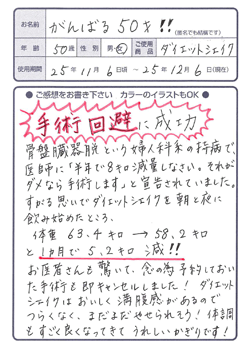 お名前
がんばる50才!!
(匿名でも結構です)
年齢 50歳 性別 男・女 ご使用商品 ダイエットシェイク
使用期間 25年11月6日頃〜25年12月6日(現在)
●ご感想をお書き下さい カラーのイラストもOK●
手術回避に成功
骨盤臓器脱という婦人科系の持病で、
医師に「半年で8キロ減量しなさい。それが
ダメなら手術します」と宣告されていました。
すがる思いでダイエットシェイクを朝と夜に
飲み始めたところ、
体重 63.4キロ→58.2キロ
と1カ月で5.2キロ減!!
お医者さんも驚いて、念の為予約しておい
た手術も即キャンセルしました!ダイエット
シェイクはおいしく満腹感があるので
つらくなく、まだまだやせられそう!体調
もすごく良くなってきてうれしいかぎりです!